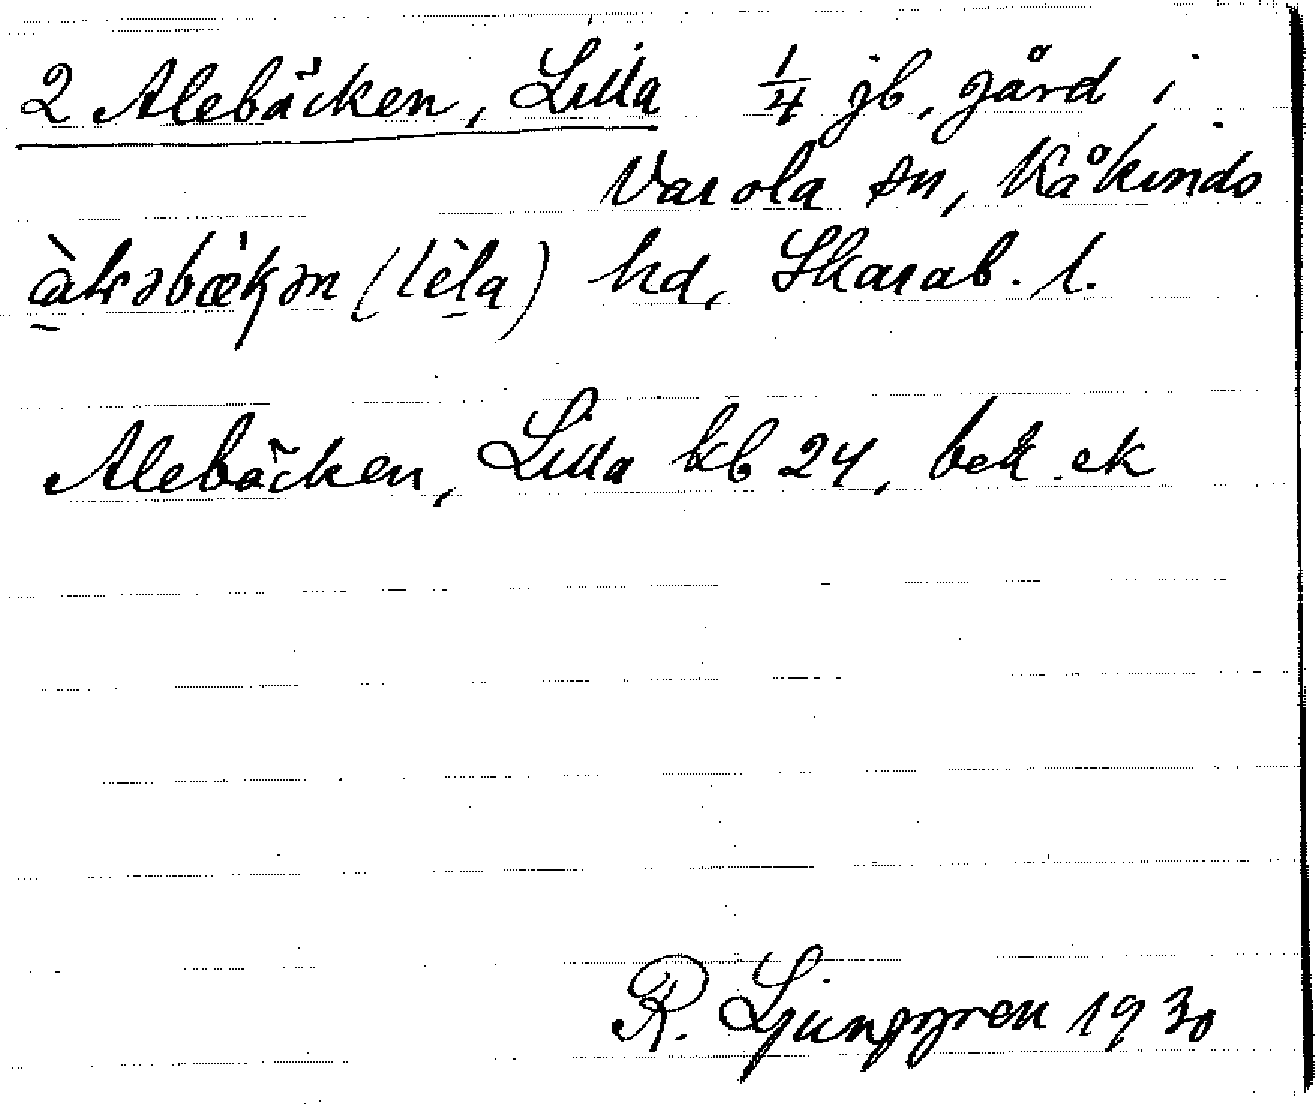 2 Alebäcken, Lilla 1/4 jb, gård i
Varola sn, Kåkinds
(lèla) hd, Skarab. l.
Alebäcken, Lilla kb 24, bet. ek
R. Ljunggren 1930